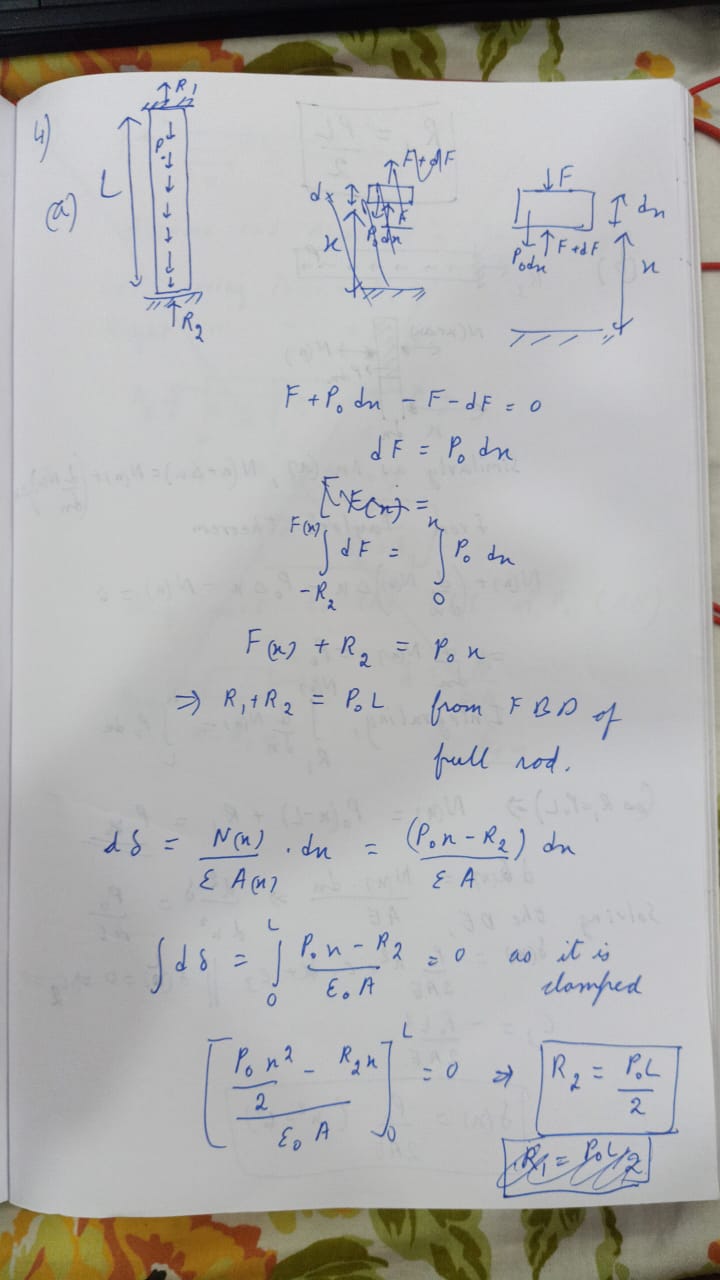 4)
(a)
R1
P0
L
R2
F+dF
dx
F
x
P0dx
F
dx
P0dx
F+dF
x
F + P0 dx - F - dF = 0
dF = P0 dx
∫_{-R2}^{F(x)} dF = ∫_0^x P0 dx
F(x) + R2 = P0 x
⇒ R1 + R2 = P0L from FBD of
full rod.
dδ = N(x)/(E A(x)) . dx = (P0x - R2)/(E A) dx
∫dδ = ∫_0^L (P0x - R2)/(E0 A) = 0 as it is
clamped
[(P0x²/2 - R2x)/(E0 A)]_0^L = 0 ⇒ R2 = P0L/2
R1 = P0L/2